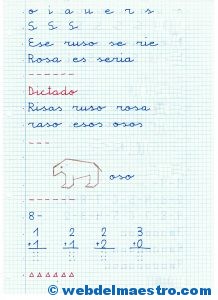 o i a u e r s
S S S
Ese ruso se rie
Rosa es seria
Dictado
Risas ruso rosa
raso esos osos
oso
8-
1 2 2 3
+1 +1 +2 +0
© webdelmaestro.com